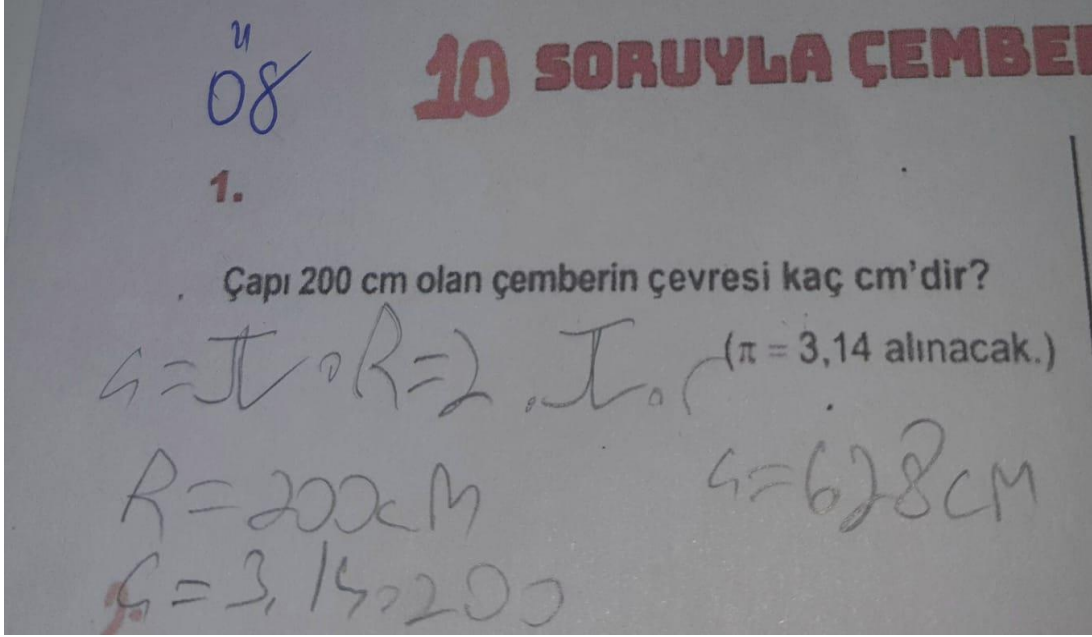 08
10 SORUYLA ÇEMBE
1.
Çapı 200 cm olan çemberin çevresi kaç cm'dir?
(π = 3,14 alınacak.)
Ç=π.R=2.π.r
R=200cM
Ç=628cM
Ç=3,14.200